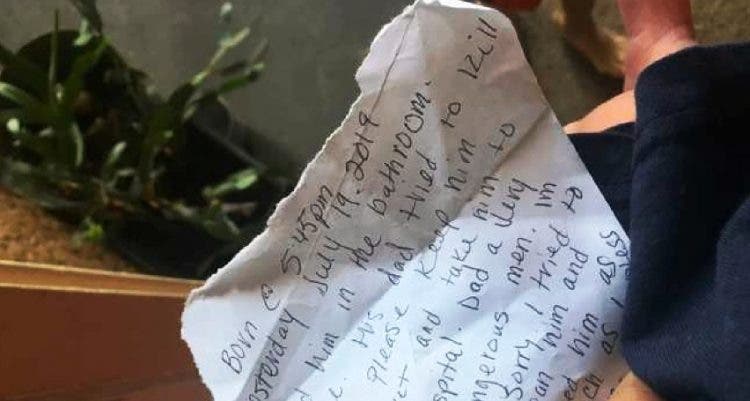 Born @ 5:45 pm
esterday July 19, 2019
d him in the bathroom.
e. His dad tried to kill
Please keep him
et and take him to
spital. Dad a very
ngerous men. Im
Sorry I tried to
an him and
ed him as
ch as I